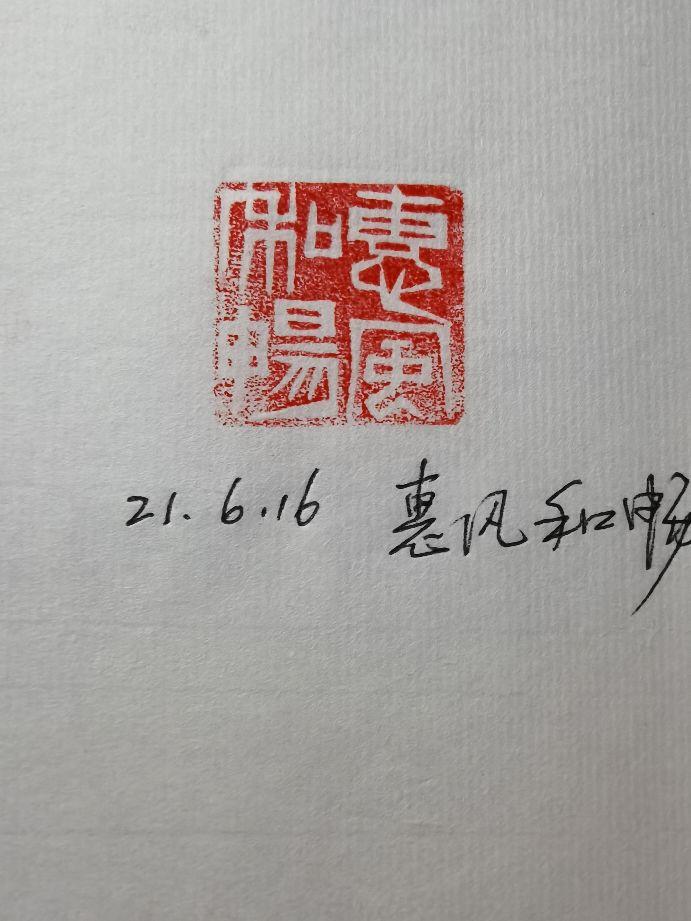 惠風和暢
21.6.16 惠风和畅